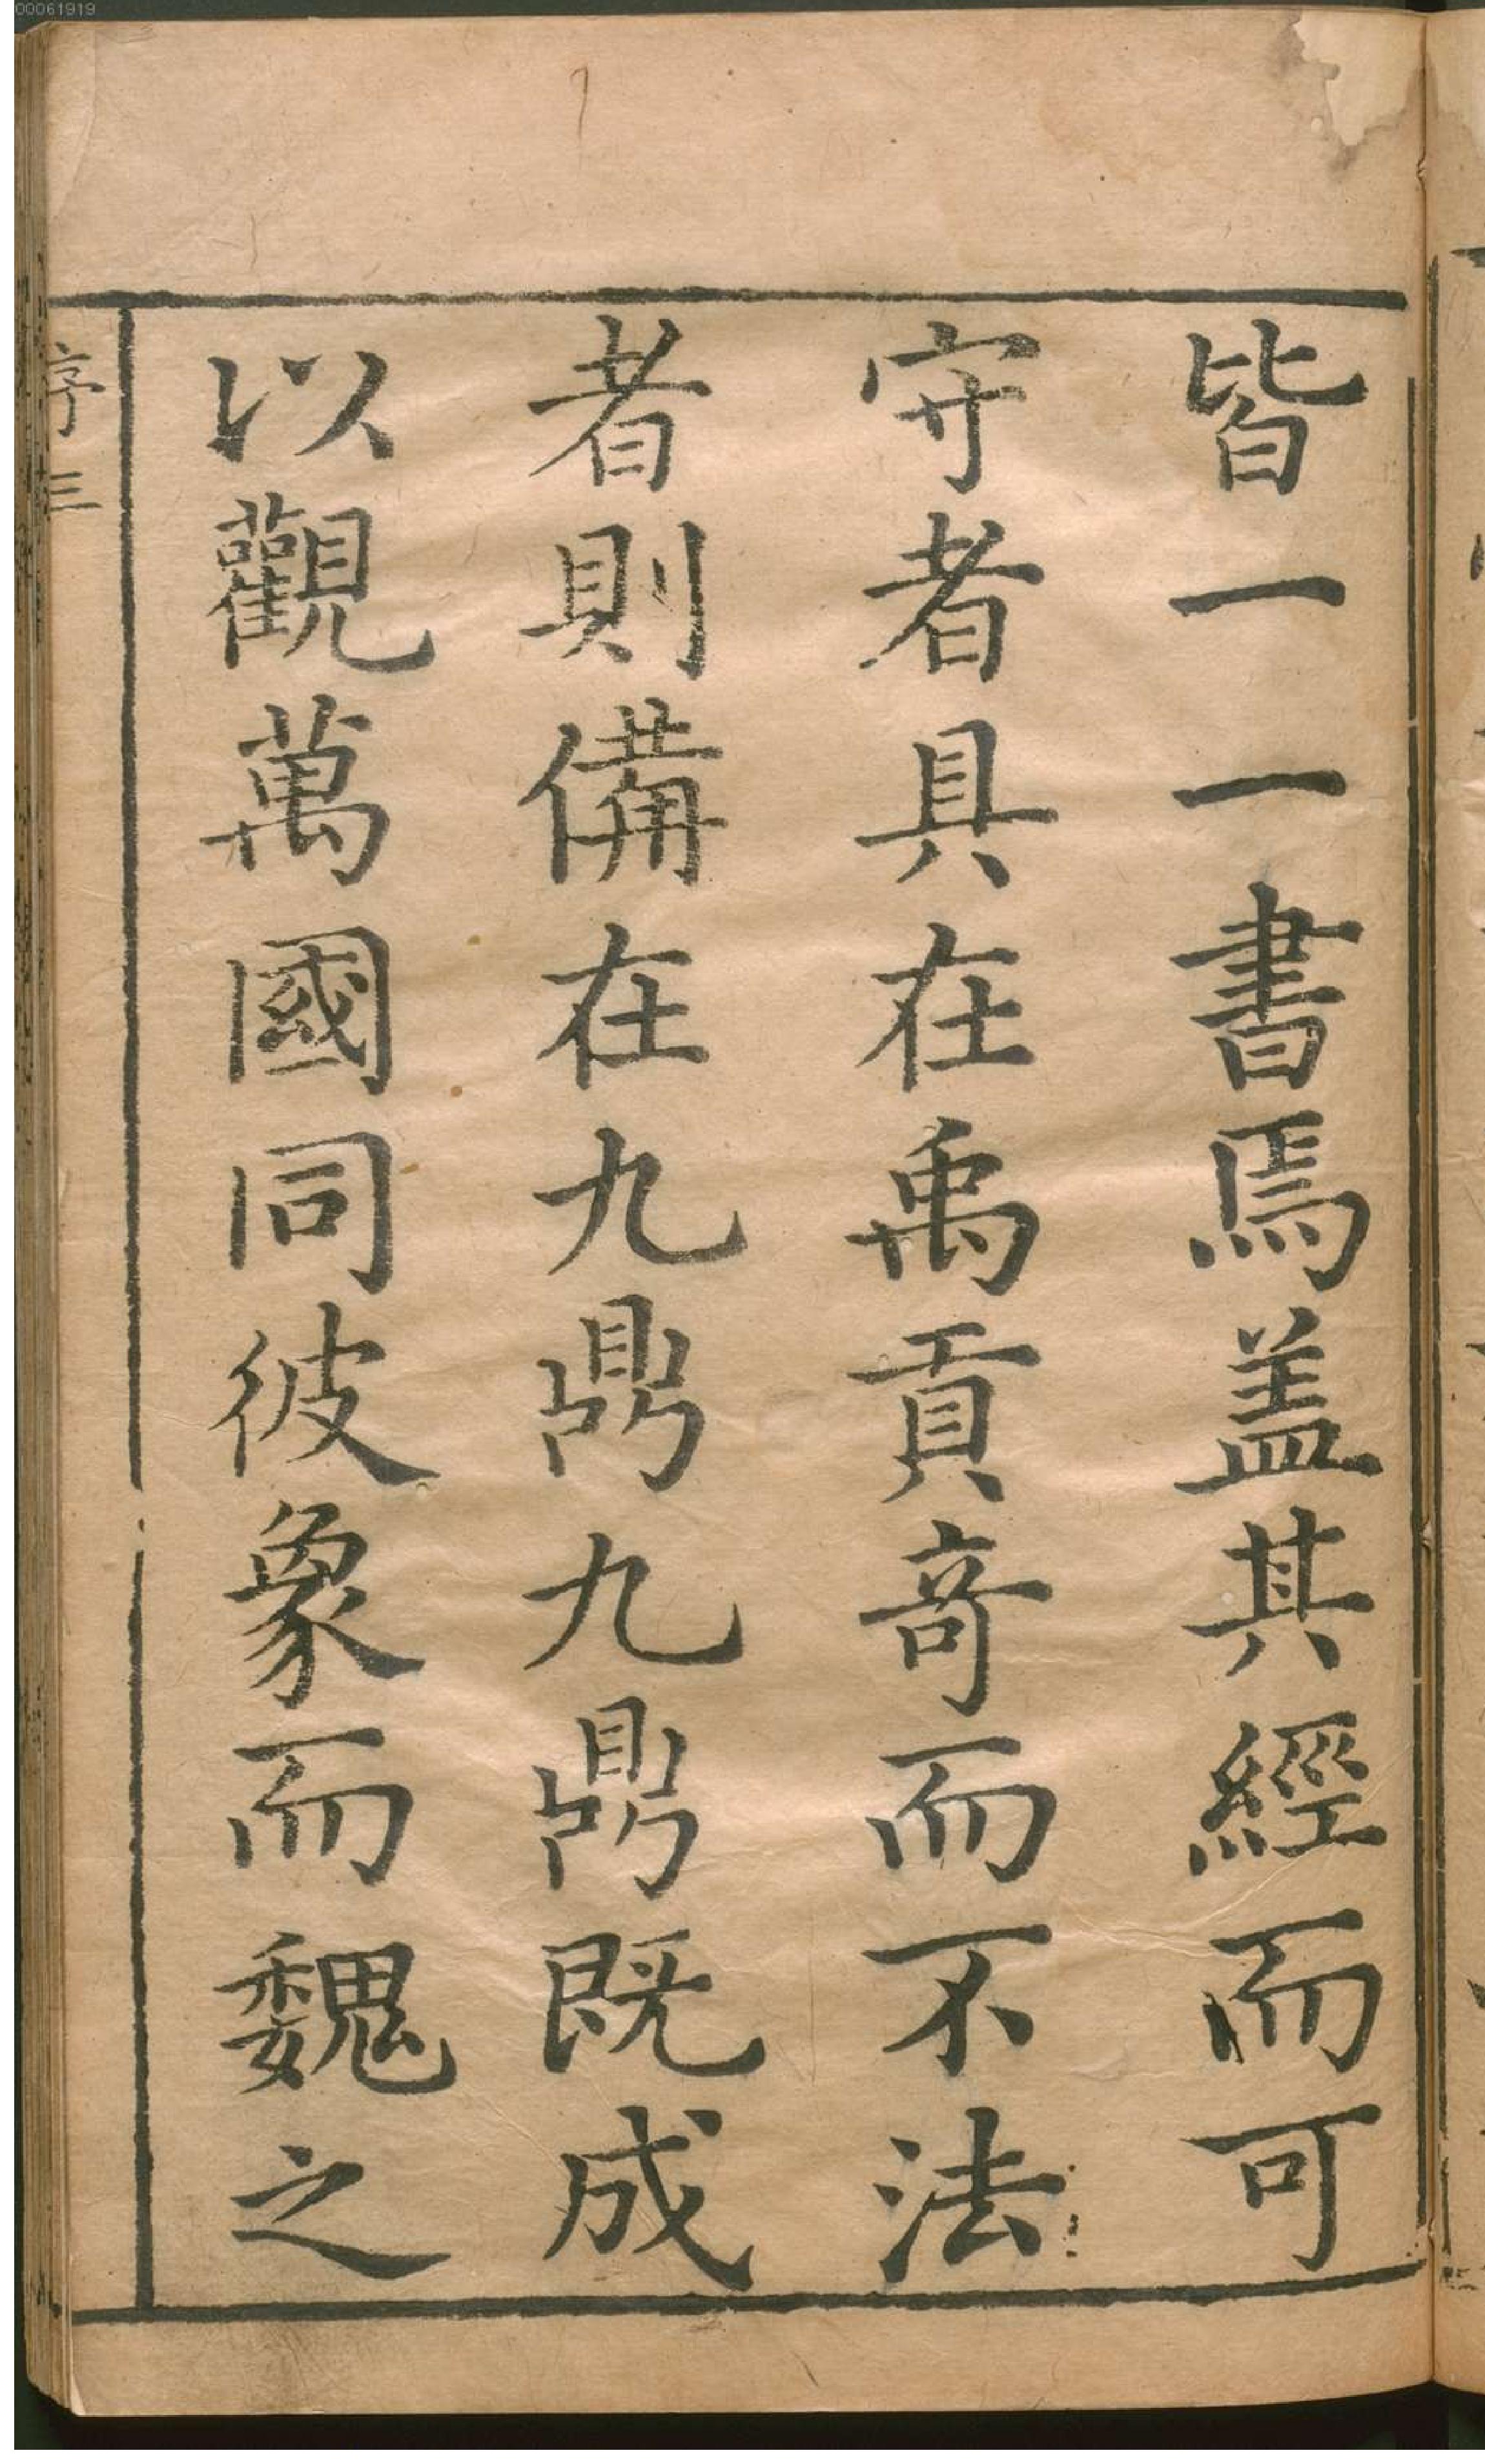 皆一一書焉盖其經而可
守者具在禹貢竒而不法
者則備在九鼎九鼎既成
以觀萬國同彼象而魏之
序 三
00061919